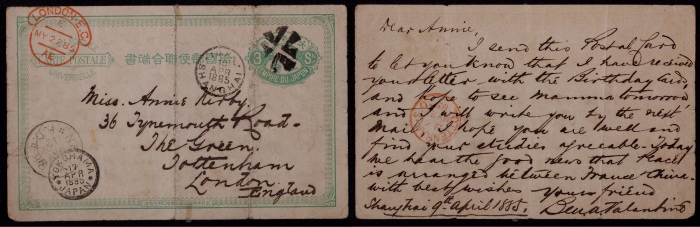 LONDON.E.C.
E
MY 22 85
AE
CARTE POSTALE
UNIVERSELLE
書端便郵合聯國萬
3 Sn
EMPIRE DU JAPON
SHANGHAI
APR
1885
Miss Annie Kirby.
36 Tynemouth Road.
The Green.
Tottenham
London
England
YOKOHAMA
17
APR
1885
JAPAN
Dear Annie,
I send this Postal Card
to let you know that I have received
your letter with the Birthday Cards,
and hope to see Mamma tomorrow
and I will write you by the next
Mail. I hope you are well and
find your studies agreeable. Today
we hear the good news that Peace
is arranged between France & China.
with best wishes yours friend
Shanghai 9th April 1885.